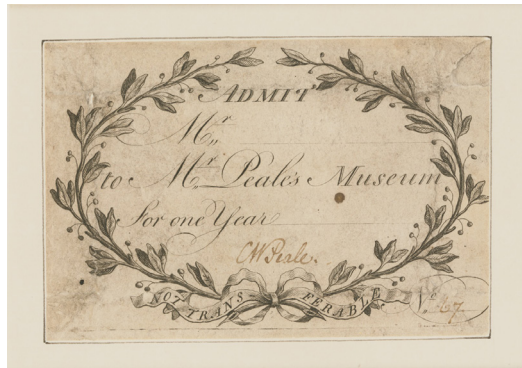 ADMIT
Mr.
to Mr. Peale's Museum
for one Year
CWPeale.
NOT TRANSFERABLE
No. 67